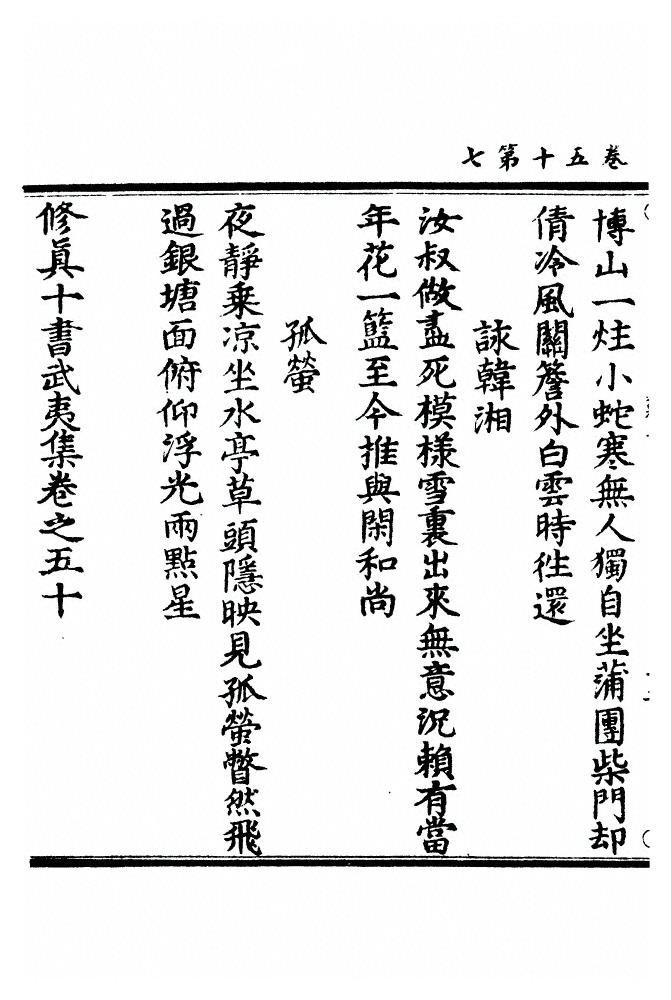 七第十五卷
博山一炷小蛇寒無人獨自坐蒲團柴門却
倩冷風關簷外白雲時徃還
詠韓湘
汝叔做盡死模様雪裏出來無意況賴有當
年花一籃至今推與閑和尚
孤螢
夜靜乗凉坐水亭草頭隱映見孤螢瞥然飛
過銀塘面俯仰浮光兩點星
修真十書武夷集卷之五十